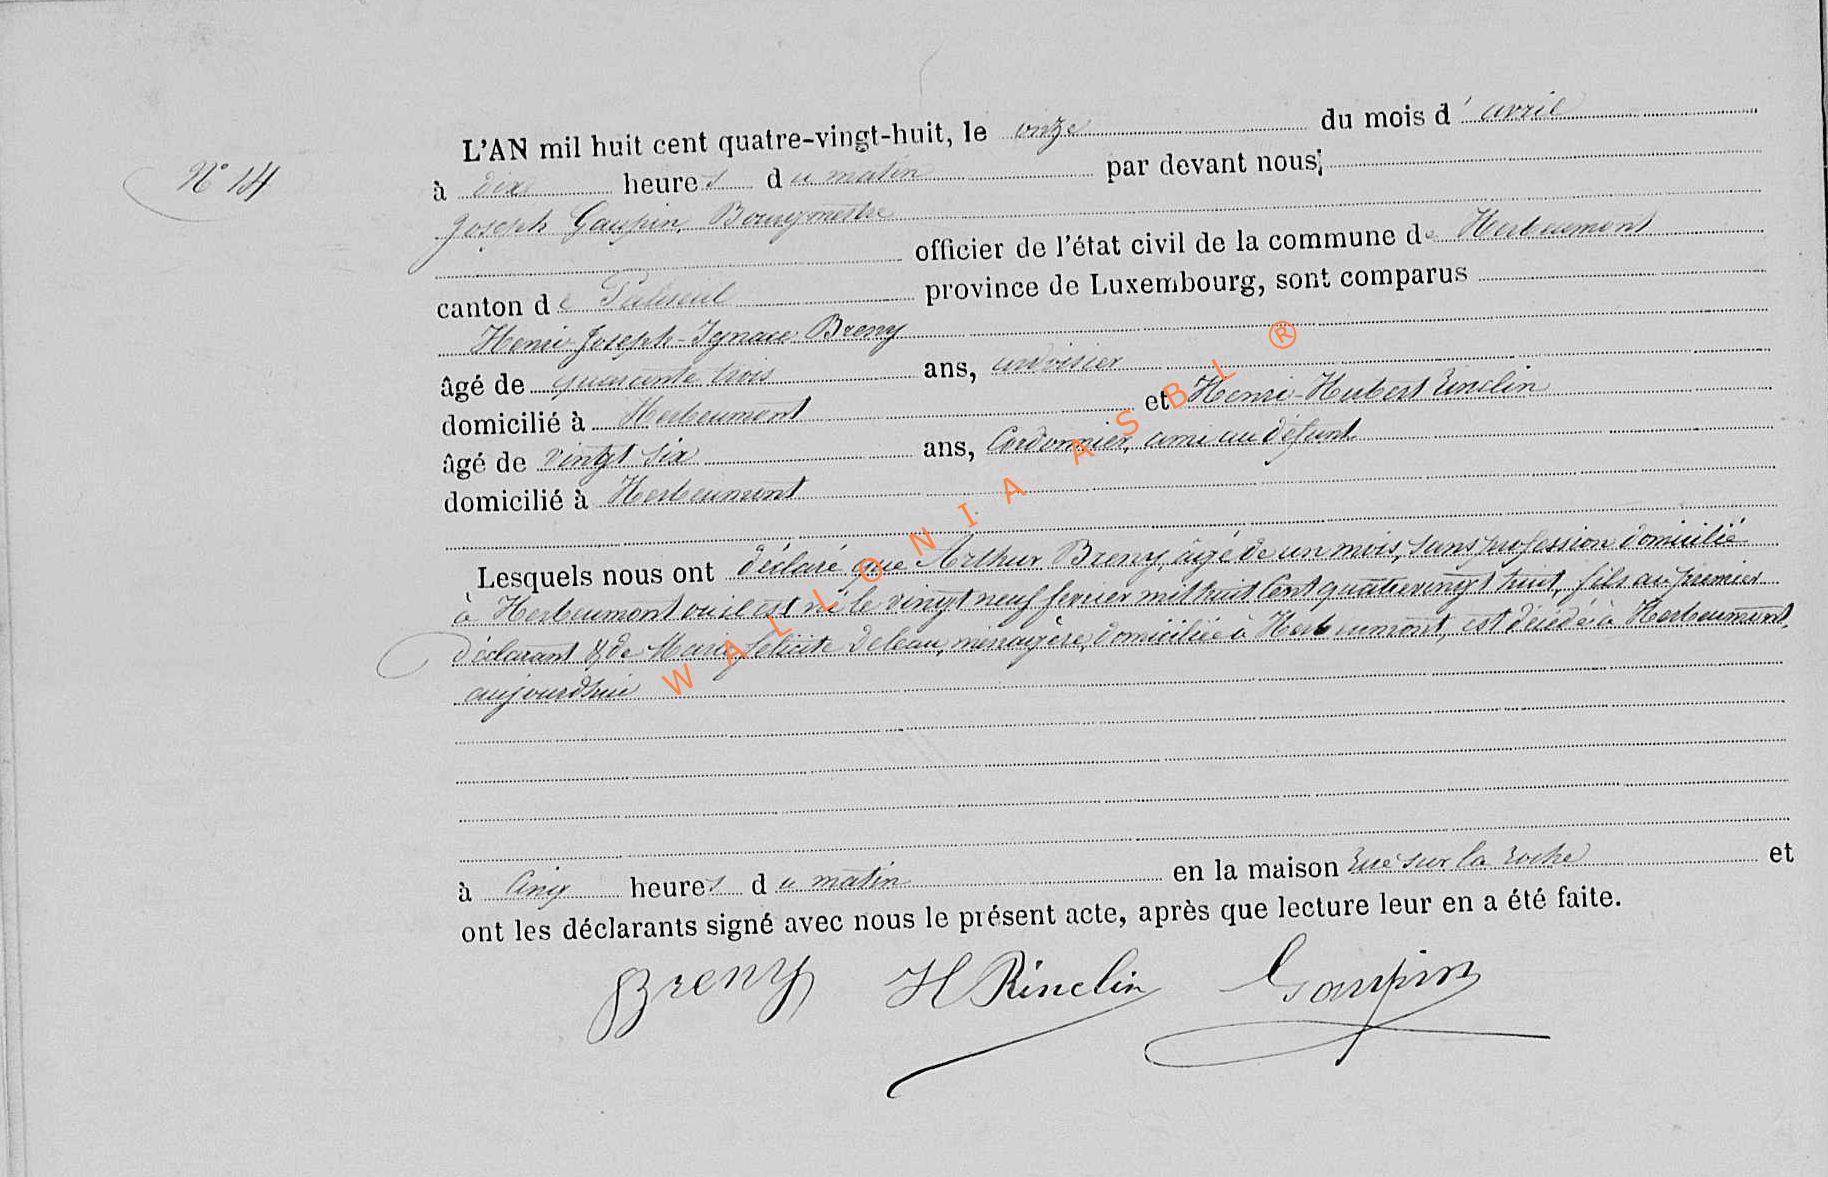 N° 14
L'AN mil huit cent quatre-vingt-huit, le onze du mois d'avril
à dix heures du matin par devant nous;
Joseph Gaupin, Bourgmestre
officier de l'état civil de la commune de Herbeumont
canton de Paliseul province de Luxembourg, sont comparus
Henri-Joseph-Ignace Breny
âgé de quarante trois ans, ardoisier
domicilié à Herbeumont et Henri-Hubert Rinclin
âgé de vingt six ans, Cordonnier, ami au défunt
domicilié à Herbeumont
Lesquels nous ont déclaré que Arthur Breny, âgé de un mois, sans profession domicilié
à Herbeumont ou il est né le vingt neuf fevrier mil huit Cent quatrevingt huit, fils au premier
déclarant & de Marie Felicite Deleau, ménagère, domiciliée à Herbeumont, est décédé à Herbeumont,
aujourdhui
à Cinq heures du matin en la maison rue sur la roche et
ont les déclarants signé avec nous le présent acte, après que lecture leur en a été faite.
Breny H Rinclin Gaupin
WALLONIA ASBL ®